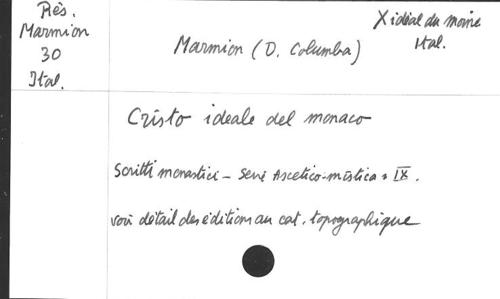 Rés.
Marmion
30
Ital.
Marmion (D. Columba)
X idéal du moine
Ital.
Cristo ideale del monaco
Scritti monastici - Serie Ascetico-mistica, IX.
voir détail des éditions au cat. topographique